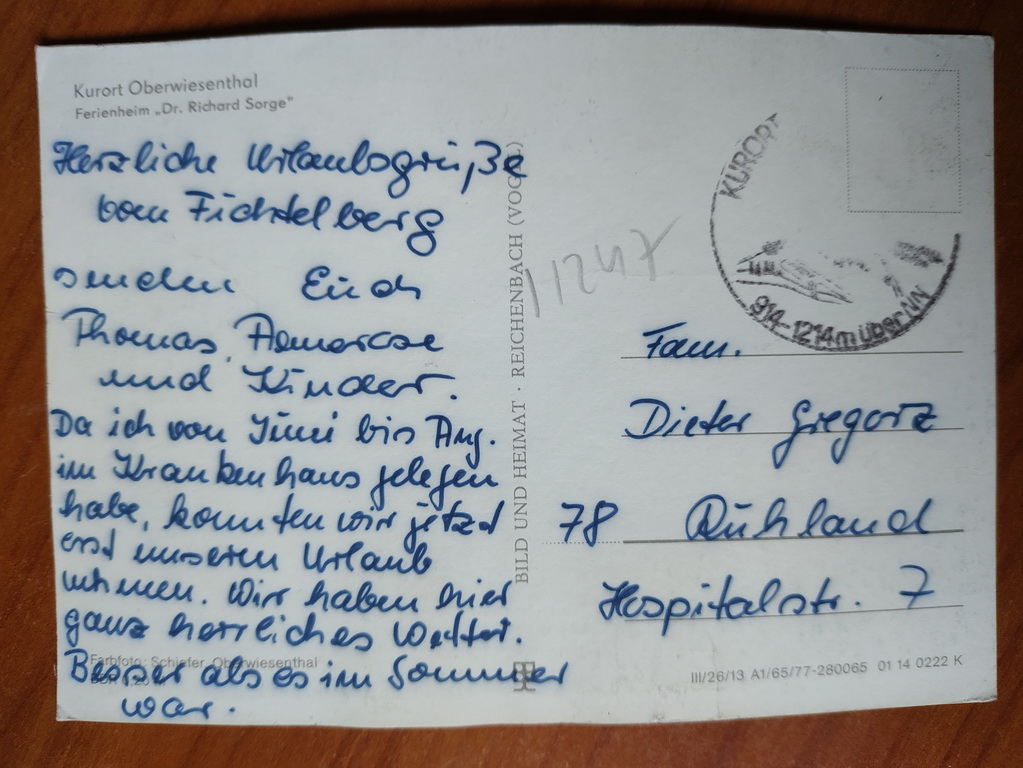 Kurort Oberwiesenthal
Ferienheim „Dr. Richard Sorge"
Herzliche Urlaubsgrüße
vom Fichtelberg
senden Euch
Thomas,
und Kinder.
Da ich von Juni bis Aug.
im Krankenhaus gelegen
habe, konnten wir jetzt
erst unseren Urlaub
nehmen. Wir haben hier
ganz herrliches Wetter.
Besser als es im Sommer
war.
Farbfoto: Schiefer, Oberwiesenthal
BILD UND HEIMAT · REICHENBACH (VOGTL)
11247
KURORT
914-1214m über NN
Fam.
Dieter Gregorz
78 Ruhland
Hospitalstr. 7
III/26/13 A1/65/77-280065 01 14 0222 K